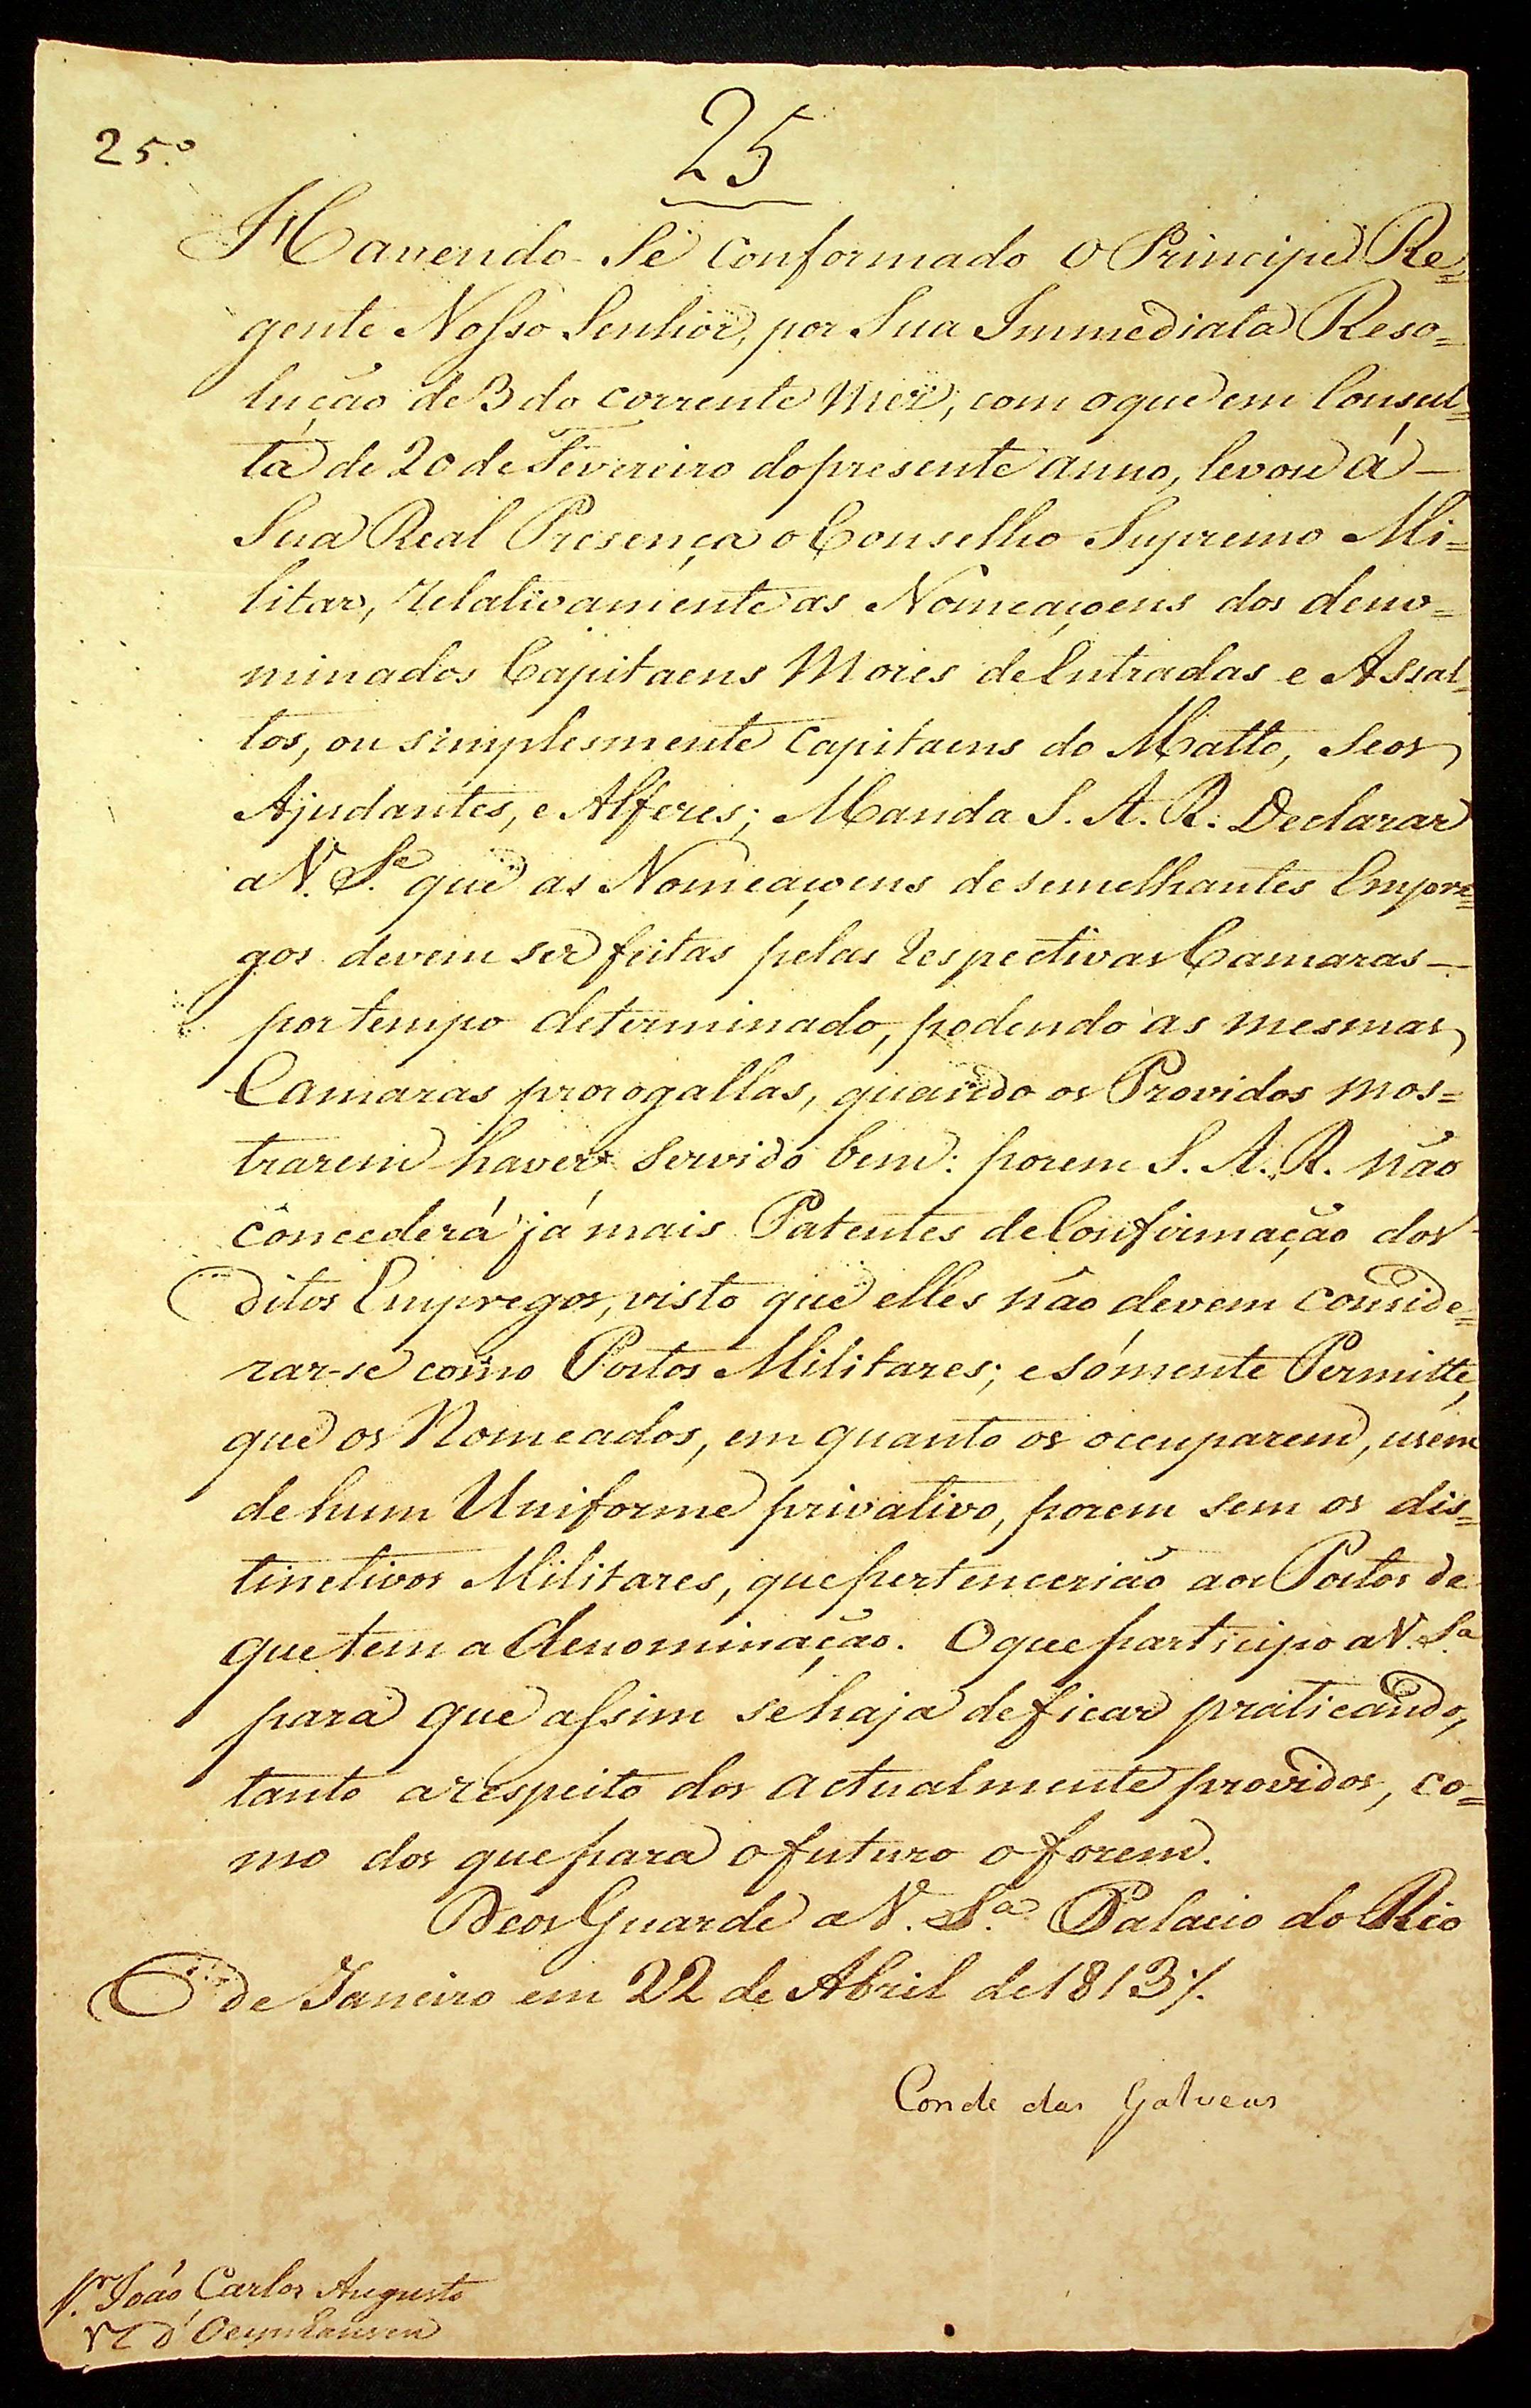 25.º
25
Havendo-Se conformado o Principe Re=
gente Nosso Senhor, por Sua Immediata Reso=
lução de 3 do corrente Mez, com o que em Consul=
ta de 20 de Fevereiro do presente anno, levou á
Sua Real Presença o Conselho Supremo Mi=
litar, relativamente as Nomeaçoens dos deno=
minados Capitaens Mores de Entradas e Assal=
tos, ou simplesmente Capitaens do Matto, Seos
Ajudantes, e Alferes; Manda S. A. R. Declarar
a V. S.ª que as Nomeaçoens de semelhantes Empre=
gos devem ser feitas pelas respectivas Camaras —
por tempo determinado, podendo as mesmas
Camaras prorogallas, quando os Providos mos=
trarem haver servido bem: porem S. A. R. não
concederá já mais Patentes de Confirmação dos
ditos Empregos, visto que elles não devem conside=
rar-se como Postos Militares; e sómente Permitte,
que os Nomeados, em quanto os occuparem, usem
de hum Uniforme privativo, porem sem os dis=
tinctivos Militares, que pertencerião aos Postos de
que tem a denominação. O que participo a V. S.ª
para que assim se haja de ficar praticando,
tanto a respeito dos actualmente providos, co=
mo dos que para o futuro o forem.
Deos Guarde a V. S.ª Palacio do Rio
de Janeiro em 22 de Abril de 1813 /.
Conde das Galveas
S.r João Carlos Augusto
d'Oeynhausen